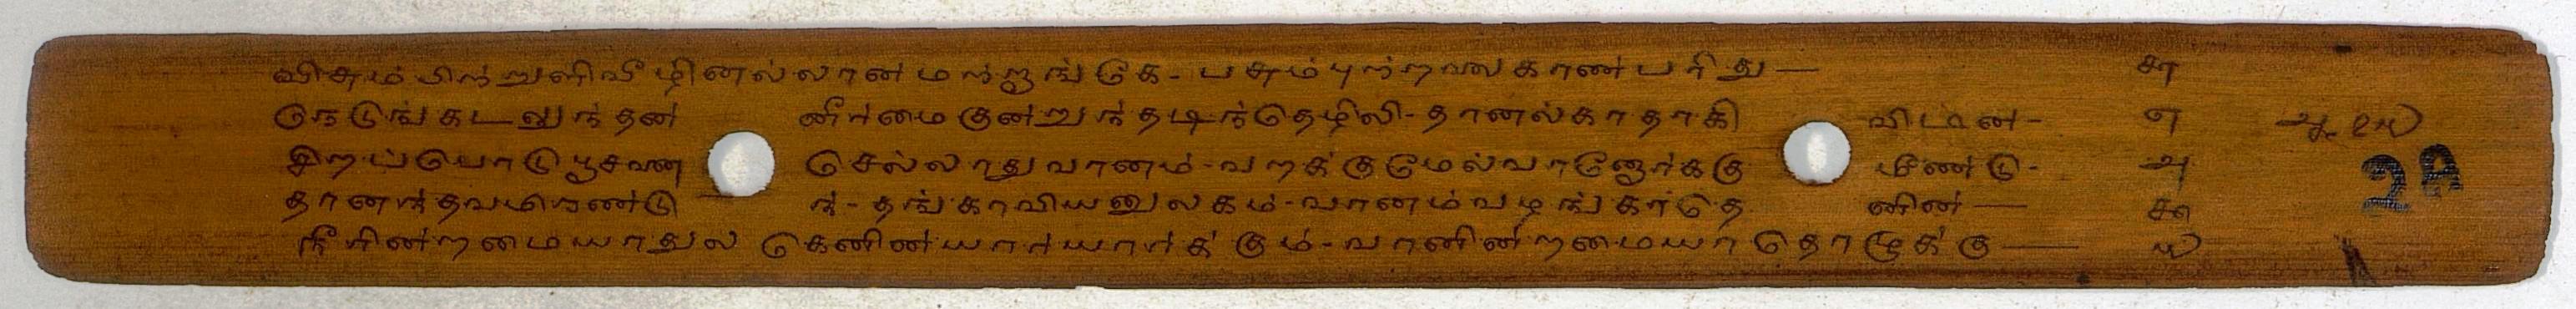 விசும்பிற்றுளிவீழினல்லான்மற்றாங்கே - பசும்புற்றலைகாண்பரிது — ௬
நெடுங்கடலுந்தன்னீர்மைகுன்றுந்தடிந்தெழிலி - தானல்காதாகிவிடின் - ௭
சிறப்பொடுபூசனைசெல்லாதுவானம் - வறக்குமேல்வானோர்க்குமீண்டு - ௮
தானந்தவமிரண்டுந் - தங்காவியனுலகம் - வானம்வழங்காதெனின் — ௯
நீரின்றமையாதுலகெனின்யார்யார்க்கும் - வானின்றமையாதொழுக்கு — ௰